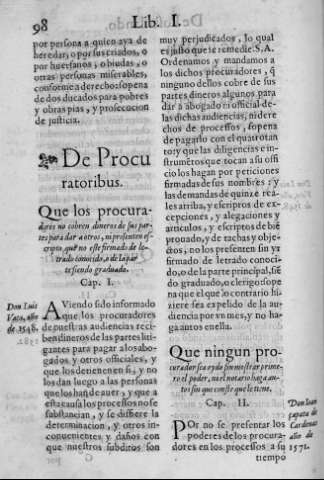 98
Lib. I.
por persona a quien aya de
heredar, o por sus criados, o
por huerfanos, o biudas, o
otras personas miserables,
conforme a derecho: so pena
de dos ducados para pobres
y obras pias, y prosecucion
de justicia.
De Procu
ratoribus.
Que los procura-
dores no cobren dineros de sus par-
tes para dar a otros, ni presenten es-
cripto, que no este firmado de le-
trado conocido, o de la par
te siendo graduado.
Cap. I.
Don Luis
Vaca, año
de 1548.
AViendo sido informado
que los procuradores
de nuestras audiencias reci-
ben dineros de las partes liti-
gantes para pagar a los abo-
gados y otros officiales, y
que los detienen en si, y no
los dan luego a las personas
que los hã de auer, y que a
esta causa los processos no se
substancian, y se differe la
determinacion, y otros in-
conuenientes y daños con
que nuestros subditos son
muy perjudicados, lo qual
es justo que se remedie. S.A.
Ordenamos y mandamos a
los dichos procuradores, q
ninguno dellos cobre de sus
partes dineros algunos para
dar a abogado ni official de-
las dichas audiencias, ni dere
chos de processos, so pena
de pagarlo con el quatrotan
to: y que las diligencias e in-
strumẽtos que tocan a su offi
cio los hagan por peticiones
firmadas de sus nombres: y
las demandas de quinze rea-
les arriba, y escriptos de ex-
cepciones, y alegaciones y
articulos, y escriptos de biẽ
prouado, y de tachas y obje-
ctos, no los presenten sin yr
firmado de letrado conoci-
do, o de la parte principal, siẽ
do graduado, o clerigo: so pe-
na que el que lo contrario hi-
ziere sea expelido de la au-
diencia por vn mes, y no ha-
ga autos en ella.
Que ningun pro-
curador sea oydo sin mostrar prime-
ro el poder, ni el notario haga au-
to sin que conste que le tiene.
Cap. II.
Don Iuan
çapata de
Cardenas
año de
1571.
POr no se presentar los
poderes de los procura-
dores en los processos a su
tiempo